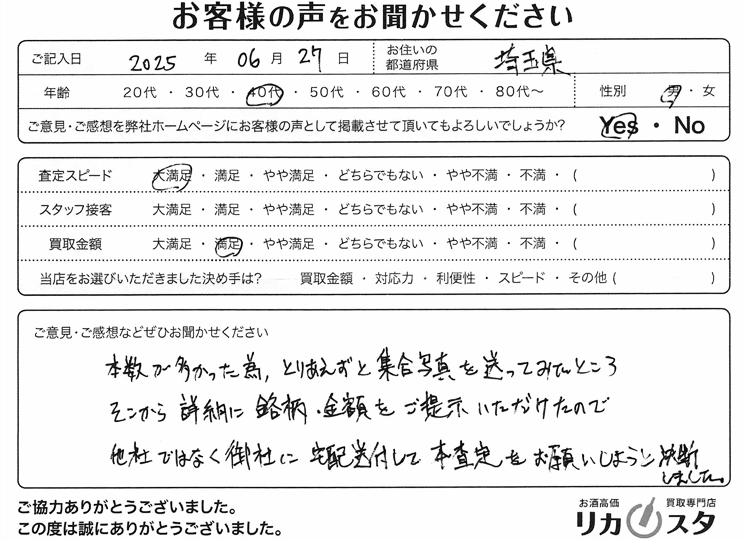 お客様の声をお聞かせください
ご記入日 2025 年 06 月 27 日 お住いの都道府県 埼玉県
年齢 20代 ・ 30代 ・ 40代 ・ 50代 ・ 60代 ・ 70代 ・ 80代〜 性別 男 ・ 女
ご意見・ご感想を弊社ホームページにお客様の声として掲載させて頂いてもよろしいでしょうか? Yes ・ No
査定スピード 大満足 ・ 満足 ・ やや満足 ・ どちらでもない ・ やや不満 ・ 不満 ・ ( )
スタッフ接客 大満足 ・ 満足 ・ やや満足 ・ どちらでもない ・ やや不満 ・ 不満 ・ ( )
買取金額 大満足 ・ 満足 ・ やや満足 ・ どちらでもない ・ やや不満 ・ 不満 ・ ( )
当店をお選びいただきました決め手は? 買取金額 ・ 対応力 ・ 利便性 ・ スピード ・ その他 ( )
ご意見・ご感想などぜひお聞かせください
本数が多かった為、とりあえずと集合写真を送ってみたところ
そこから詳細に銘柄・金額をご提示いただけたので
他社ではなく御社に宅配送付して本査定をお願いしようと決断
しました。
ご協力ありがとうございました。
この度は誠にありがとうございました。
お酒高価 買取専門店
リカスタ